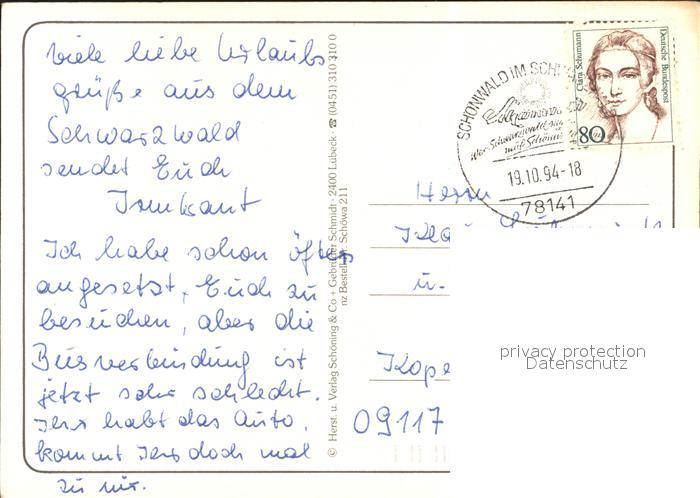 viele liebe Urlaubs
grüße aus dem
Schwarzwald
sendet Euch
Irmkant
Ich habe schon öfters
angesetzt, Euch zu
besuchen, aber die
Busverbindung ist
jetzt sehr schlecht.
Ihr habt das Auto,
kommt Ihr doch mal
zu mir.
© Herst. u. Verlag Schöning & Co + Gebrüder Schmidt · 2400 Lübeck · ☎ (0451) 310 310 0
nz Bestell-Nr. Schöwa 211
SCHÖNWALD IM SCHWA
19.10.94-18
78141
Clara Schumann
Deutsche Bundespost
80
Herrn
Kla
u.
Kope
09117
privacy protection
Datenschutz